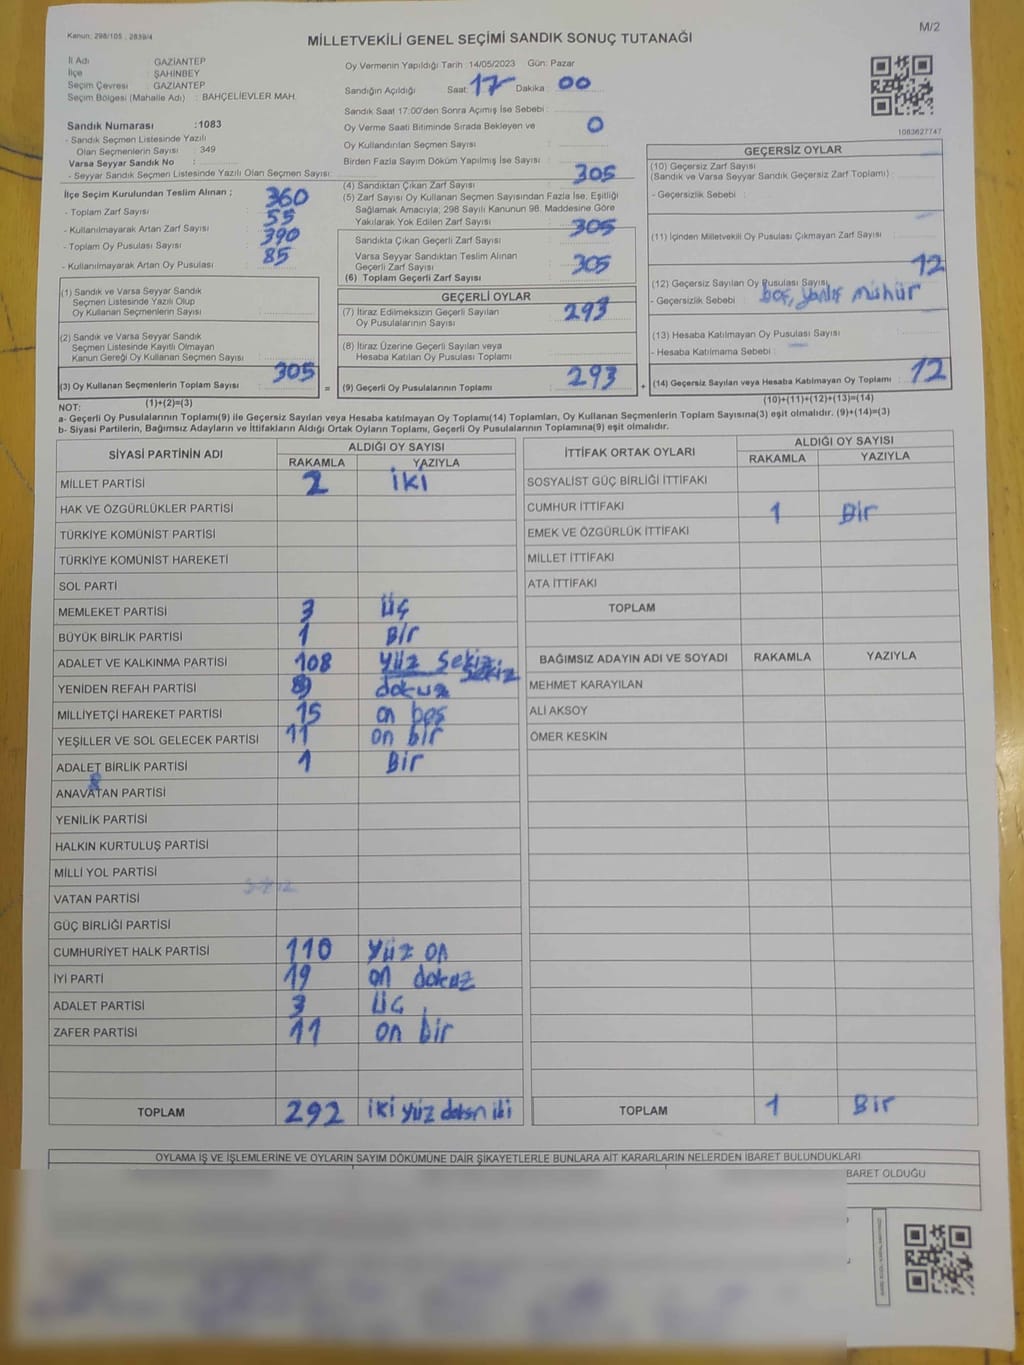 Kanun: 298/105 ; 2839/4
M/2
MİLLETVEKİLİ GENEL SEÇİMİ SANDIK SONUÇ TUTANAĞI
İl Adı GAZİANTEP
İlçe : ŞAHİNBEY
Seçim Çevresi : GAZİANTEP
Seçim Bölgesi (Mahalle Adı) : BAHÇELİEVLER MAH.
Sandık Numarası :1083
- Sandık Seçmen Listesinde Yazılı
Olan Seçmenlerin Sayısı : 349
Varsa Seyyar Sandık No :
- Seyyar Sandık Seçmen Listesinde Yazılı Olan Seçmen Sayısı:
Oy Vermenin Yapıldığı Tarih : 14/05/2023 Gün: Pazar
Sandığın Açıldığı Saat: 17 Dakika : 00
Sandık Saat 17:00'den Sonra Açımış İse Sebebi :
Oy Verme Saati Bitiminde Sırada Bekleyen ve
Oy Kullandırılan Seçmen Sayısı : 0
Birden Fazla Sayım Döküm Yapılmış İse Sayısı :
1083627747
İlçe Seçim Kurulundan Teslim Alınan ;
- Toplam Zarf Sayısı : 360
- Kullanılmayarak Artan Zarf Sayısı : 55
- Toplam Oy Pusulası Sayısı : 390
- Kullanılmayarak Artan Oy Pusulası : 85
(1) Sandık ve Varsa Seyyar Sandık
Seçmen Listesinde Yazılı Olup
Oy Kullanan Seçmenlerin Sayısı :
(2) Sandık ve Varsa Seyyar Sandık
Seçmen Listesinde Kayıtlı Olmayan
Kanun Gereği Oy Kullanan Seçmen Sayısı :
(3) Oy Kullanan Seçmenlerin Toplam Sayısı : 305
(1)+(2)=(3)
(4) Sandıktan Çıkan Zarf Sayısı : 305
(5) Zarf Sayısı Oy Kullanan Seçmen Sayısından Fazla İse, Eşitliği
Sağlamak Amacıyla; 298 Sayılı Kanunun 98. Maddesine Göre
Yakılarak Yok Edilen Zarf Sayısı :
Sandıkta Çıkan Geçerli Zarf Sayısı : 305
Varsa Seyyar Sandıktan Teslim Alınan
Geçerli Zarf Sayısı :
(6) Toplam Geçerli Zarf Sayısı : 305
GEÇERLİ OYLAR
(7) İtiraz Edilmeksizin Geçerli Sayılan
Oy Pusulalarının Sayısı : 293
(8) İtiraz Üzerine Geçerli Sayılan veya
Hesaba Katılan Oy Pusulası Toplamı :
= (9) Geçerli Oy Pusulalarının Toplamı : 293
GEÇERSİZ OYLAR
(10) Geçersiz Zarf Sayısı
(Sandık ve Varsa Seyyar Sandık Geçersiz Zarf Toplamı) :
- Geçersizlik Sebebi :
(11) İçinden Milletvekili Oy Pusulası Çıkmayan Zarf Sayısı :
(12) Geçersiz Sayılan Oy Pusulası Sayısı 12
- Geçersizlik Sebebi : boş, yanlış mühür
(13) Hesaba Katılmayan Oy Pusulası Sayısı :
- Hesaba Katılmama Sebebi :
+ (14) Geçersiz Sayılan veya Hesaba Katılmayan Oy Toplamı : 12
(10)+(11)+(12)+(13)=(14)
NOT:
a- Geçerli Oy Pusulalarının Toplamı(9) ile Geçersiz Sayılan veya Hesaba katılmayan Oy Toplamı(14) Toplamları, Oy Kullanan Seçmenlerin Toplam Sayısına(3) eşit olmalıdır. (9)+(14)=(3)
b- Siyasi Partilerin, Bağımsız Adayların ve İttifakların Aldığı Ortak Oyların Toplamı, Geçerli Oy Pusulalarının Toplamına(9) eşit olmalıdır.
SİYASİ PARTİNİN ADI ALDIĞI OY SAYISI
RAKAMLA YAZIYLA
MİLLET PARTİSİ 2 iki
HAK VE ÖZGÜRLÜKLER PARTİSİ
TÜRKİYE KOMÜNİST PARTİSİ
TÜRKİYE KOMÜNİST HAREKETİ
SOL PARTİ
MEMLEKET PARTİSİ 3 üç
BÜYÜK BİRLİK PARTİSİ 1 Bir
ADALET VE KALKINMA PARTİSİ 108 yüz sekiz sekiz
YENİDEN REFAH PARTİSİ 9 dokuz
MİLLİYETÇİ HAREKET PARTİSİ 15 on beş
YEŞİLLER VE SOL GELECEK PARTİSİ 11 on bir
ADALET BİRLİK PARTİSİ 1 Bir
ANAVATAN PARTİSİ
YENİLİK PARTİSİ
HALKIN KURTULUŞ PARTİSİ
MİLLİ YOL PARTİSİ
VATAN PARTİSİ
GÜÇ BİRLİĞİ PARTİSİ
CUMHURİYET HALK PARTİSİ 110 yüz on
İYİ PARTİ 19 on dokuz
ADALET PARTİSİ 3 üç
ZAFER PARTİSİ 11 on bir
TOPLAM 292 iki yüz doksan iki
İTTİFAK ORTAK OYLARI ALDIĞI OY SAYISI
RAKAMLA YAZIYLA
SOSYALİST GÜÇ BİRLİĞİ İTTİFAKI
CUMHUR İTTİFAKI 1 Bir
EMEK VE ÖZGÜRLÜK İTTİFAKI
MİLLET İTTİFAKI
ATA İTTİFAKI
TOPLAM
BAĞIMSIZ ADAYIN ADI VE SOYADI RAKAMLA YAZIYLA
MEHMET KARAYILAN
ALİ AKSOY
ÖMER KESKİN
TOPLAM 1 Bir
OYLAMA İŞ VE İŞLEMLERİNE VE OYLARIN SAYIM DÖKÜMÜNE DAİR ŞİKAYETLERLE BUNLARA AİT KARARLARIN NELERDEN İBARET BULUNDUKLARI
BARET OLDUĞU